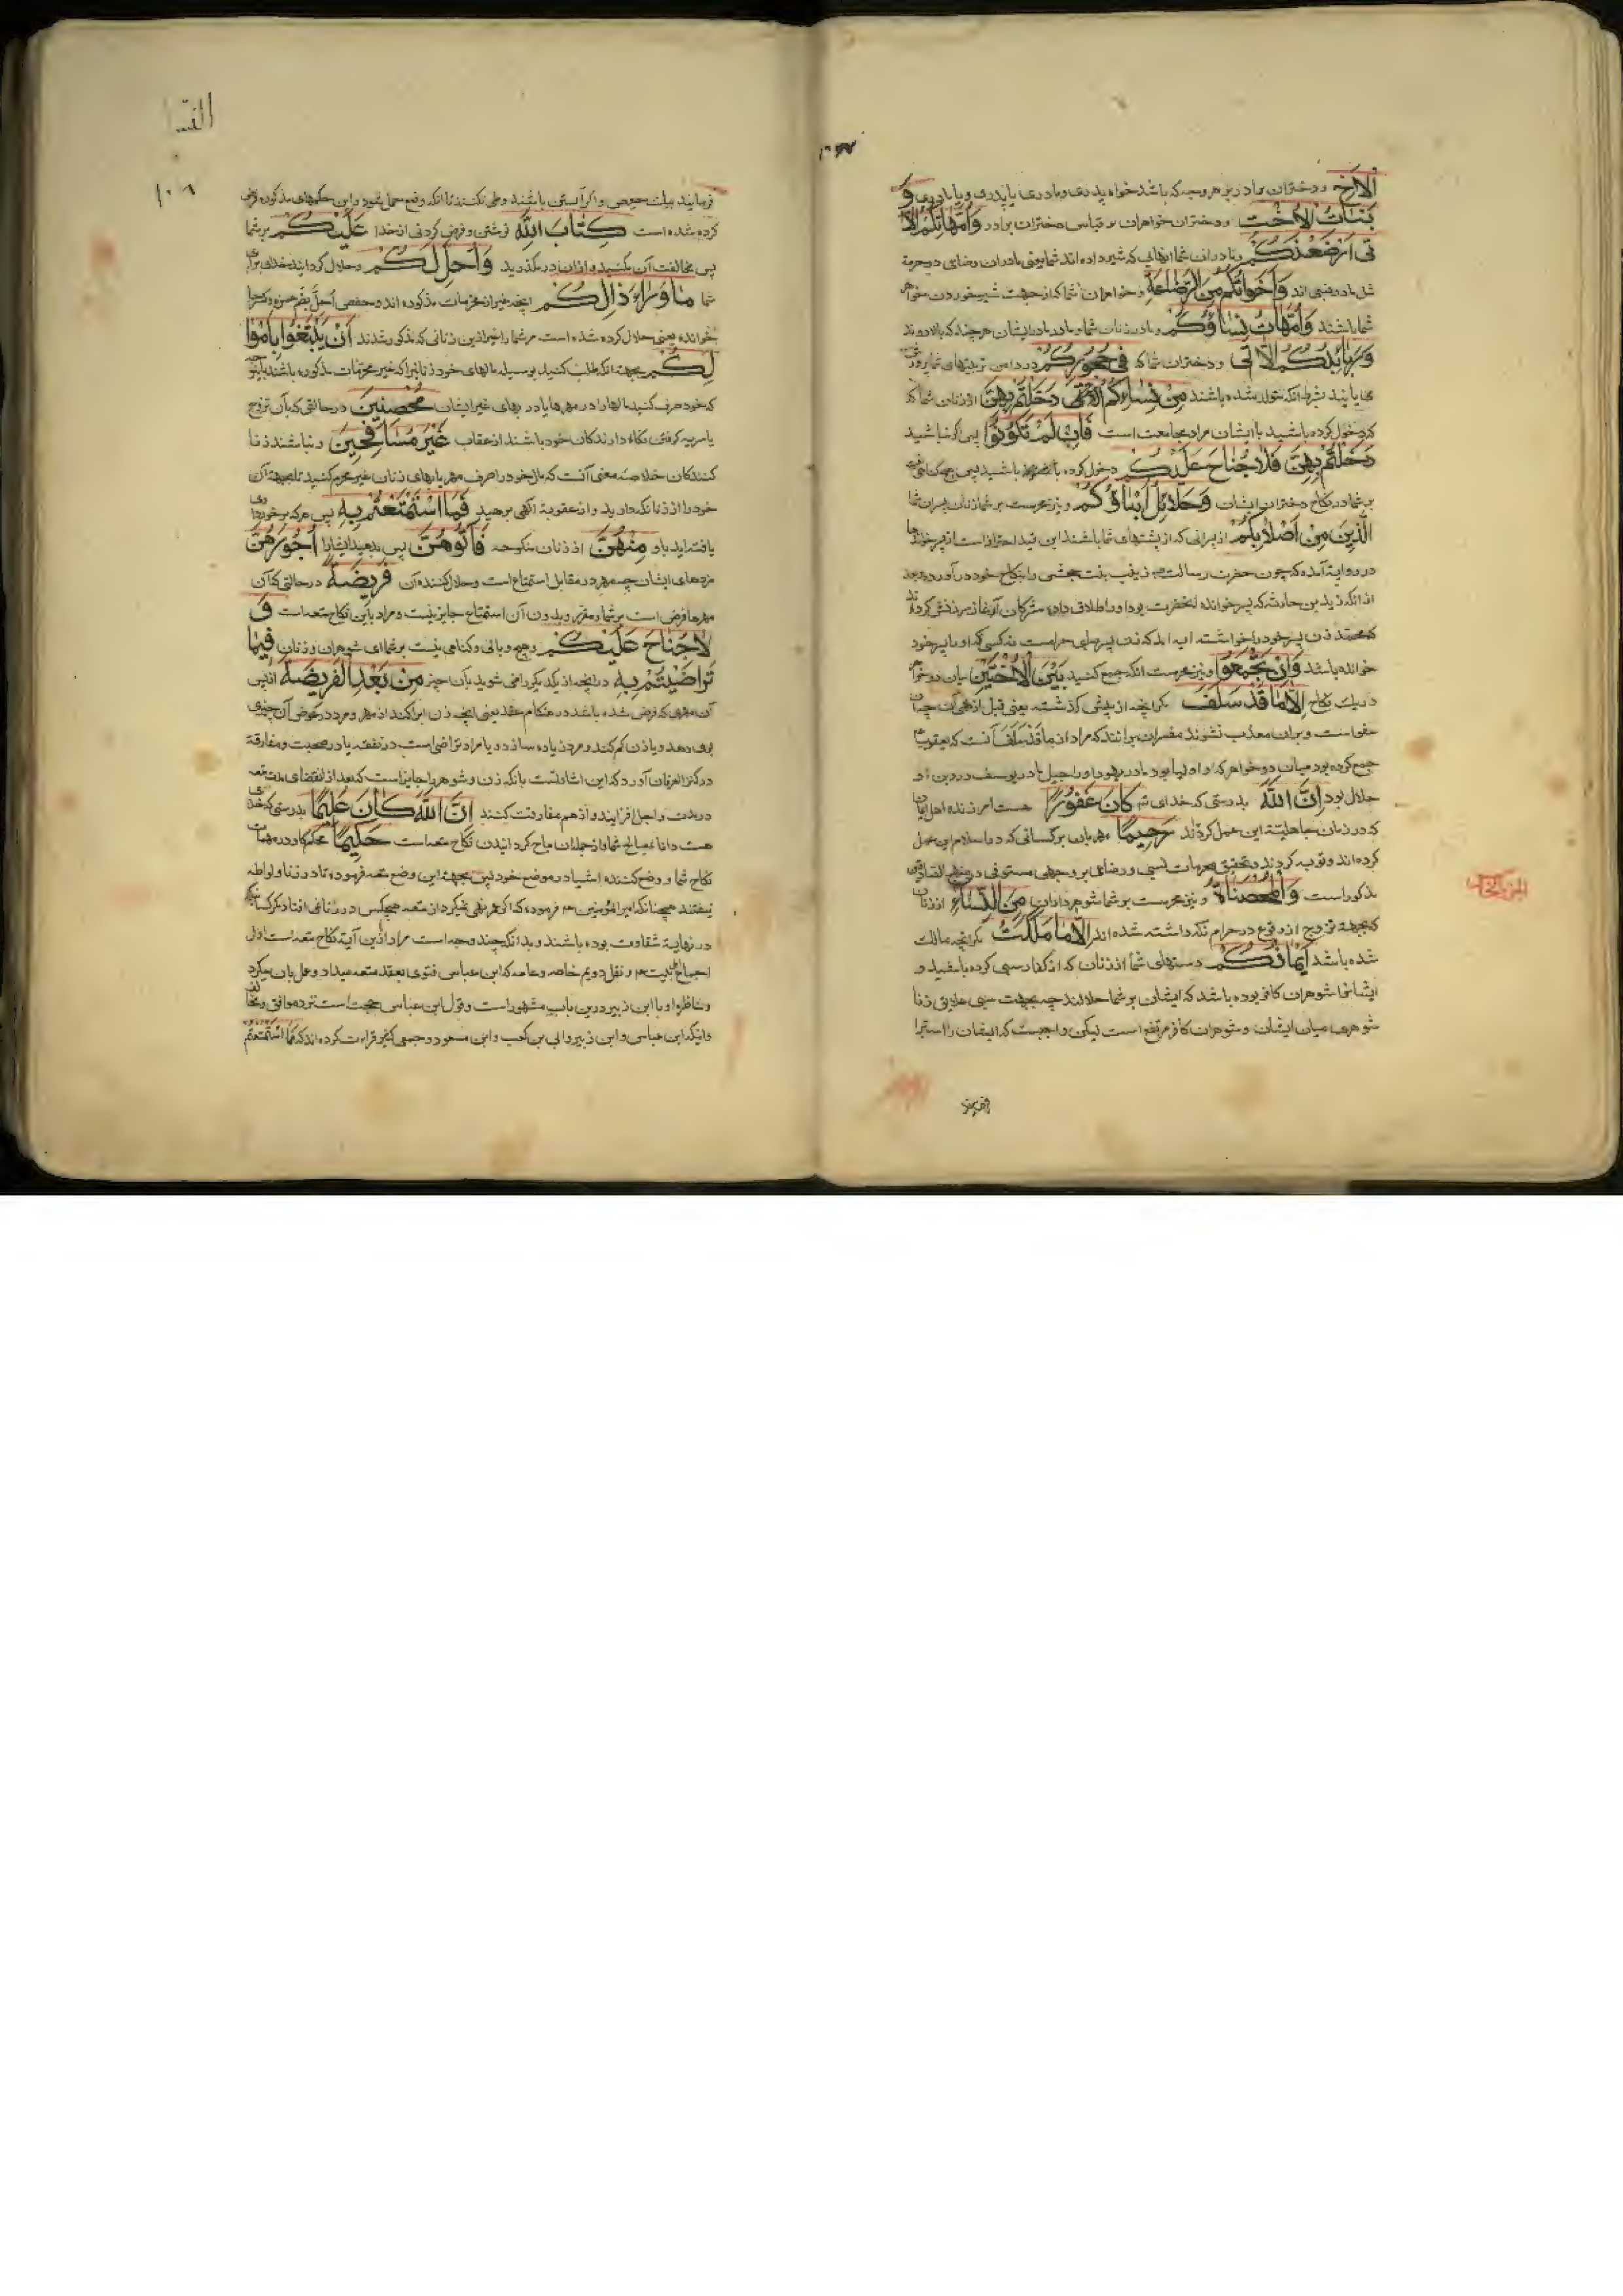 الاخ و دختران برادر بهر وجه که باشد خواه پدری و مادری یا پدری و یا مادری و
بنات الاخت و دختران خواهران بر قیاس دختران برادر و امهاتکم اللا
تی ارضعنکم و مادران شما آنهایی که شیر داده اند شما یعنی مادران رضاعی در حرمة
مثل مادر نسبی اند و اخواتکم من الرضاعة و خواهران شما که از جهت شیر خوردن خواهر
شما باشند و امهات نسائکم و مادر زنان شما و مادر مادر ایشان هر چند که بالا روند
و ربائبکم اللاتی و دختران شما که فی حجورکم در دامن تربیتهای شما پرورش
می یابند بشرط آنکه متولد شده باشند من نسائکم اللاتی دخلتم بهن از زنان شما که
دخول کرده باشید با ایشان مراد مجامعت است فان لم تکونوا پس اگر نباشید
دخلتم بهن فلا جناح علیکم دخول کرده باشید پس هیچ گناهی نیست
بر شما در نکاح دختران ایشان و حلائل ابنائکم و نیز حرمست بر شما زنان پسران شما
الذین من اصلابکم از پسرانی که از پشتهای شما باشند این قید احتراز است از پسر خوانده
در روایة آمده که چون حضرت رسالت زینب بنت جحش را بنکاح خود در آورد
از آنکه زید بن حارثه که پسر خوانده آنحضرت بود او را طلاق داد مشرکان آغاز سرزنش کردند
که محمد زن پسر خود را خواسته آیه آمد که زن پسر صلبی حرامست نه کسی که او را پسر خود
خوانده باشد و ان تجمعوا و نیز حرمست آنکه جمع کنید بین الاختین میان دو خواهر
در یک نکاح الا ما قد سلف مگر آنچه از پیش گذشته یعنی قبل از نهی
عفو است و بر آن معذب نشوند مفسران برانند که مراد از ما قد سلف آنست که یعقوب
جمع کرده بود میان دو خواهر که لیا بود مادر یهودا و راحیل مادر یوسف و در دین او
حلال بود ان الله بدرستی که خدای کان غفورا هست آمرزنده
که در زمان جاهلیة این عمل کردند رحیما مهربان بر کسانی که در اسلام این عمل
کرده اند و توبه کردند و تحقیق محرمات نسبی و رضاعی بر وجهی مستوفی در منهج الصادقین
مذکور است و المحصنات و نیز حرمست بر شما شوهر داران من النساء از زنان
که بجهة تزویج از وقوع در حرام نگه داشته شده اند الا ما ملکت مگر آنچه مالک
شده باشد ایمانکم دستهای شما از زنان که از کفار سبی کرده باشید و
ایشانرا شوهران کافر بوده باشد که ایشان بر شما حلالند چه بجهت سبی علایق زنا
شوهری میان ایشان و شوهران کافر مرتفع است لیکن واجبست که ایشان را استبرا
فرمایند
النسا
۱۰۸
فرمایند بیک حیض و اگر آبستن باشند وطی نکنند تا آنکه وضع حمل بشود و این حکمهای مذکوره فرض
کرده شده است کتاب الله نوشتن و فرض کردنی از خدا علیکم بر شما
پس مخالفت آن مکنید و از آن در مگذرید و احل لکم و حلال گردانید خدای برای
شما ما وراء ذلکم آنچه غیر از محرمات مذکوره اند و حفص احل بضم همزه و کسر حا
خوانده یعنی حلال کرده شده است مر شما را جز از این زنانی که مذکور شدند ان تبتغوا باموا
لکم بجهة آنکه طلب کنید بوسیله مالهای خود زنانیرا که غیر محرمات مذکوره باشند
که خود صرف کنید مالها را در مهرها یا در بهای غیر ایشان محصنین در حالتی که بآن تزوج
یا سریه گرفتن نگاه دارندگان خود باشند از عقاب غیر مسافحین و نباشند زنا
کنندگان خلاصه معنی آنست که مال خود را صرف مهر یا بهای زنان غیر محرم کنید تا بجهة آن
خود را از زنا نگه دارید و از عقوبة الهی برهید فما استمتعتم به پس هر که برخورداری
یافته اید باو منهن از زنان منکوحه فآتوهن پس بدهید ایشانرا اجورهن
مزدهای ایشان چه مهر در مقابل استمتاع است و حلال کننده آن فریضة در حالتی که آن
مهرها فرض است بر شما و مقرر و بدون آن استمتاع جایز نیست و مراد باین نکاح متعه است و
لا جناح علیکم و هیچ وبالی و گناهی نیست بر شما ای شوهران و زنان فیما
تراضیتم به در آنچه از یکدیگر راضی شوید بآن چیز من بعد الفریضة از پس
آن مهری که فرض شده باشد در هنگام عقد یعنی آنچه زن ابرا کند از مهر و مرد در عوض آن چیزی
بوی دهد و یا زن کم کند و مرد زیاده سازد و یا مراد تراضی است در نفقه یا در صحبت و مفارقة
در کنز العرفان آورده که این اشارتست بآنکه زن و شوهر را جایز است که بعد از انقضای مدت متعه
در مدت و اجل افزایند و از هم مفارقت کنند ان الله کان علیما بدرستی که خدای
هست دانا بمصالح شما و از جمله آن مباح گردانیدن نکاح متعه است حکیما محکم کار در مهمات
نکاح شما و وضع کننده اشیا در موضع خود پس بجهة این وضع متعه فرموده تا در زنا و لواطه
نیفتند همچنانکه امیر المؤمنین هم فرموده که اگر عمر نهی نمیکرد از متعه هیچکس در زنا نمی افتاد مگر کسانیکه
در نهایة شقاوت بوده باشند و بدانکه چند وجه است مراد ازین آیة نکاح متعه است اول
اجماع اهل بیت هم و نقل دویم خاصه و عامه که ابن عباس فتوی بعقد متعه میداد و عمل بآن میکرد
و مناظره او با ابن زبیر درین باب مشهور است و قول ابن عباس حجت است نزد موافق و مخالف
و آنکه ابن عباس و ابن زبیر و ابی بن کعب و ابن مسعود و جمعی کثیر قراءت کرده اند که فما استمتعتم